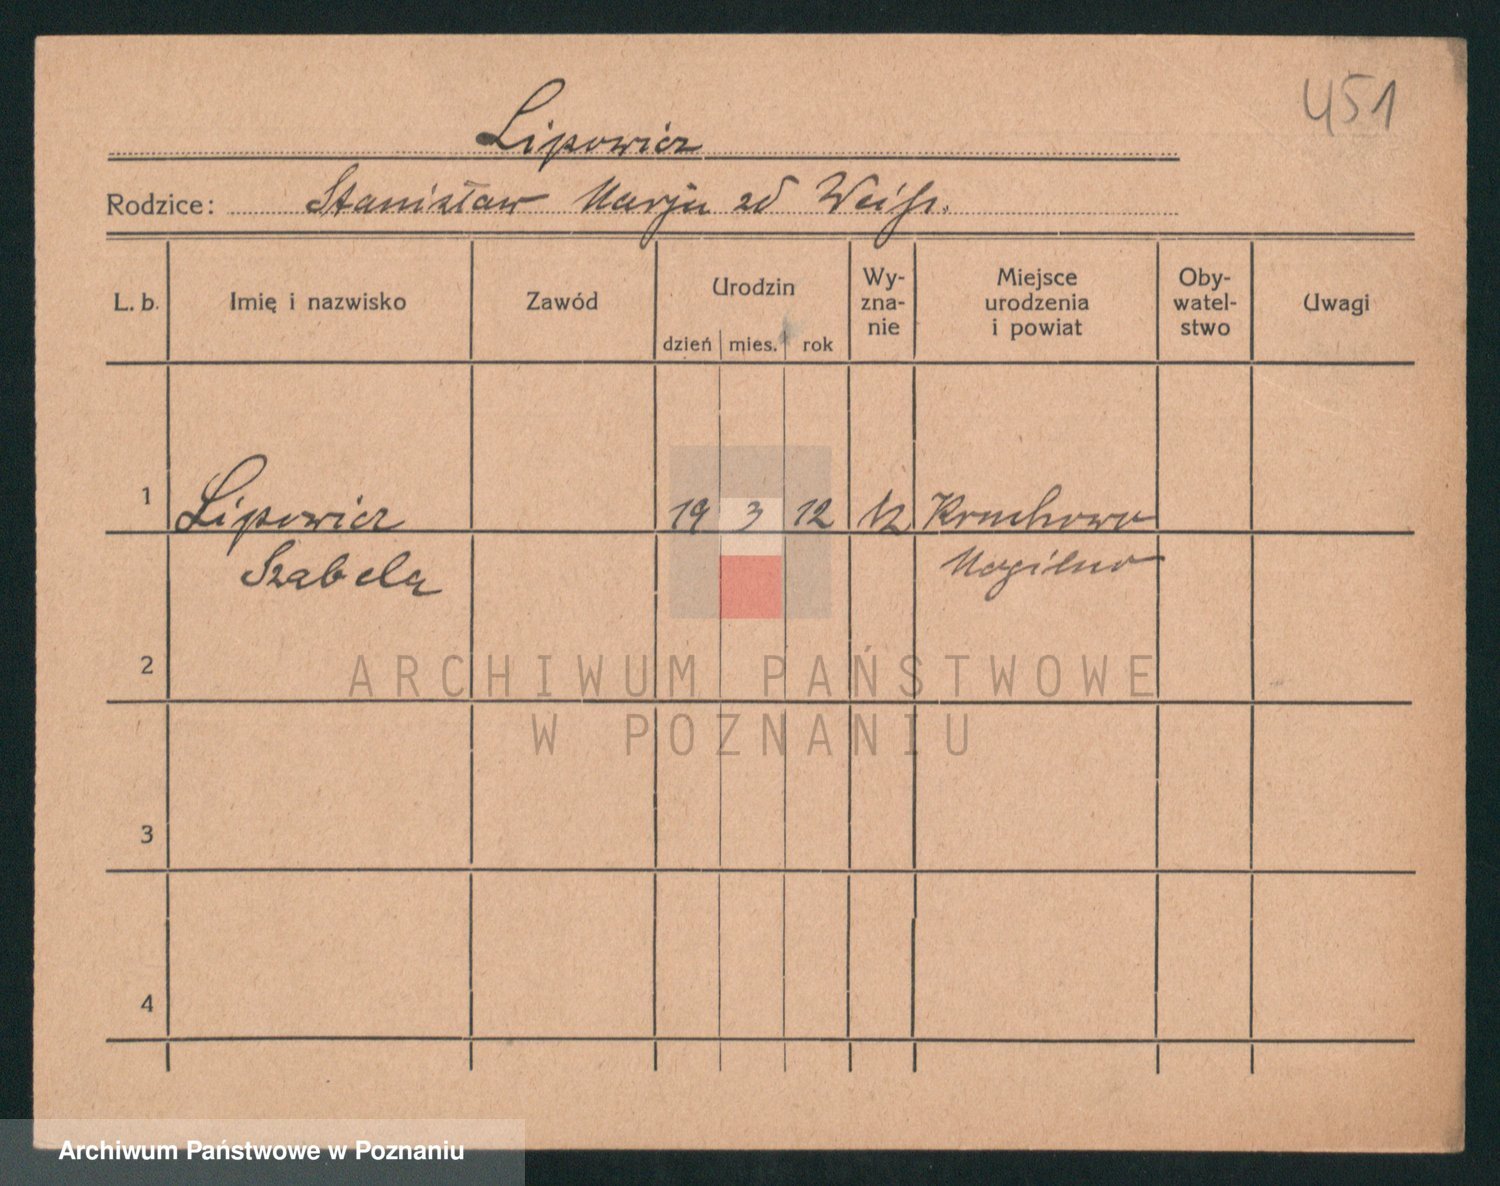 451
Lipowicz
Rodzice: Stanisław Marja zd Weiss.
L. b. Imię i nazwisko Zawód Urodzin dzień mies. rok Wy-zna-nie Miejsce urodzenia i powiat Oby-watel-stwo Uwagi
1 Lipowicz 19 3 12 Kruchowo
Izabela Mogilno
2
ARCHIWUM PAŃSTWOWE
W POZNANIU
3
4
Archiwum Państwowe w Poznaniu